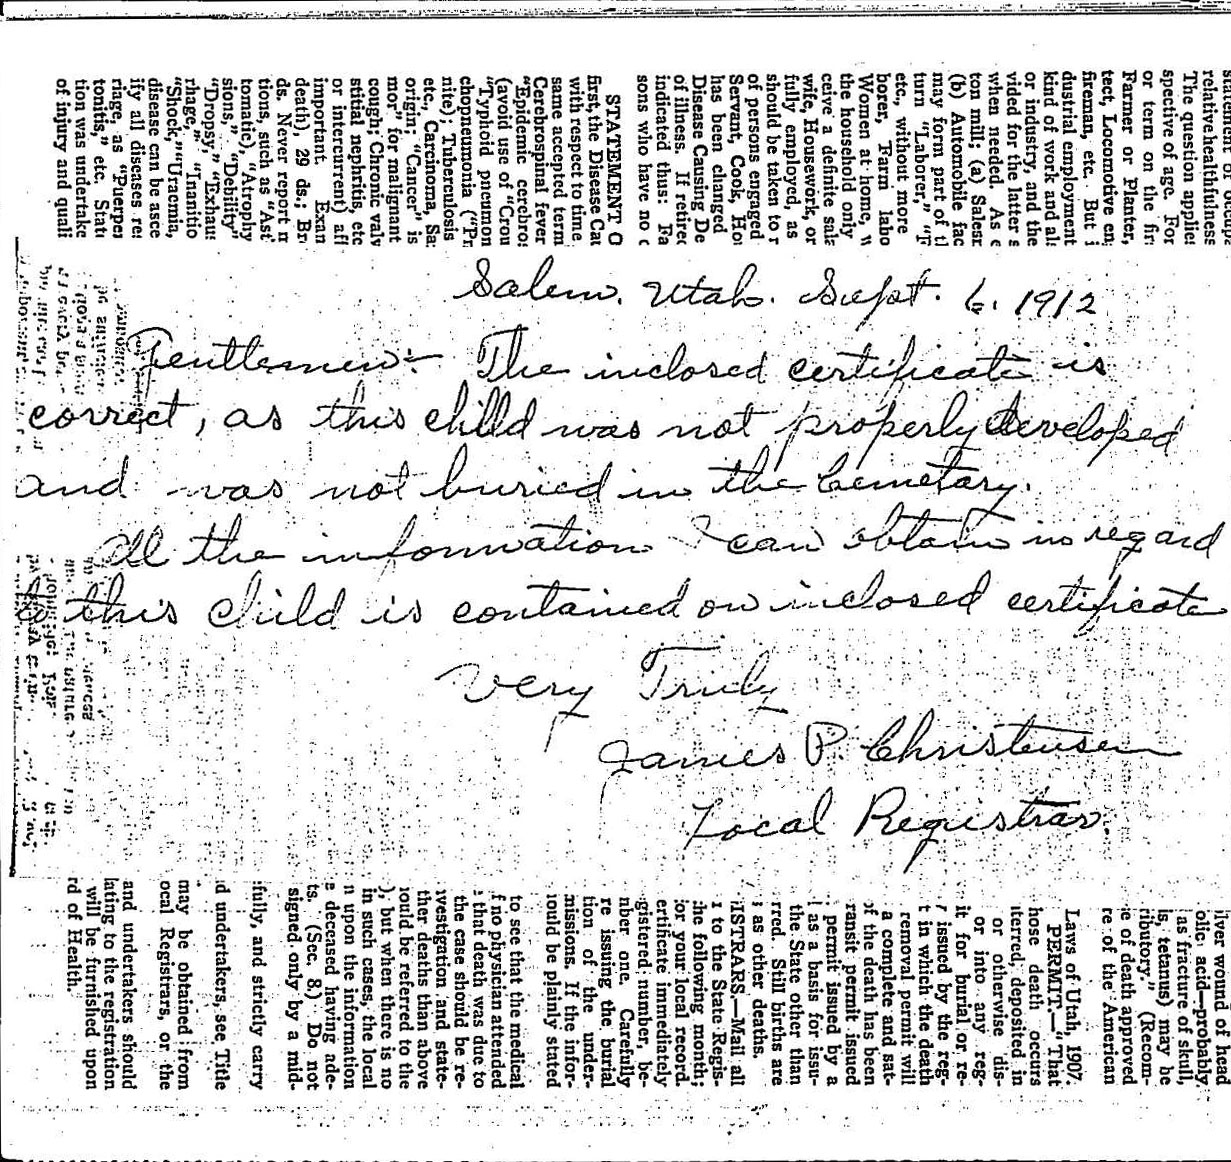 relative healthfulness
The question applie
spective of age. For
or term on the fir
Farmer or Planter,
tect, Locomotive en
fireman, etc. But i
dustrial employment
kind of work and al
or industry, and the
vided for the latter s
when needed. As e
ton mill; (a) Salesr
(b) Automobile fac
may form part of th
turn "Laborer," "F
etc., without more
borer, Farm labo
Women at home, w
the household only
ceive a definite sala
wife, Housework, or
fully employed, as
should be taken to r
of persons engaged
Servant, Cook, Hou
has been changed
Disease Causing De
of illness. If retired
indicated thus: Fa
sons who have no o
STATEMENT O
first, the Disease Cau
with respect to time
same accepted term
Cerebrospinal fever
"Epidemic cerebros
(avoid use of "Crou
"Typhoid pneumon
chopneumonia ("Pn
nite); Tuberculosis
etc., Carcinoma, Sa
origin; "Cancer" is
mor" for malignant
cough; Chronic valv
stitial nephritis, etc
or intercurrent) aff
important. Exam
death), 29 ds.; Bro
ds. Never report m
tions, such as "Ast
tomatic,) "Atrophy
sions," "Debility"
"Dropsy," "Exhaus
rhage," "Inanitio
"Shock," "Uraemia,
disease can be asce
ify all diseases res
riage, as "Puerper
tonitis," etc. State
tion was undertake
of injury and quali
Salem. Utah. Sept. 6. 1912
Gentlemen:- The inclosed certificate is
correct, as this child was not properly developed
and was not buried in the Cemetary.
All the information I can obtain in regard
to this child is contained on inclosed certificate
Very Truly
James P. Christensen
Local Registrar.
lver wound of head
olic acid—probably
as fracture of skull,
is, tetanus) may be
ributory." (Recom-
e of death approved
re of the American
Laws of Utah, 1907.
PERMIT.—"That
hose death occurs
terred, deposited in
or otherwise dis-
or into any reg-
it for burial or re-
issued by the reg-
t in which the death
removal permit will
a complete and sat-
of the death has been
ransit permit issued
permit issued by a
as a basis for issu-
the State other than
rred. Still births are
as other deaths.
ISTRARS.—Mail all
to the State Regis-
he following month;
or your local record.
ertificate immediately
gistered number, be-
nber one. Carefully
re issuing the burial
tion of the under-
missions. If the infor-
ould be plainly stated
to see that the medical
f no physician attended
that death was due to
the case should be re-
vestigation and state-
ther deaths than above
ould be referred to the
), but when there is no
in such cases, the local
n upon the information
e deceased having ade-
ts. (Sec. 8.) Do not
signed only by a mid-
fully, and strictly carry
d undertakers, see Title
may be obtained from
ocal Registrars, or the
and undertakers should
lating to the registration
will be furnished upon
rd of Health.